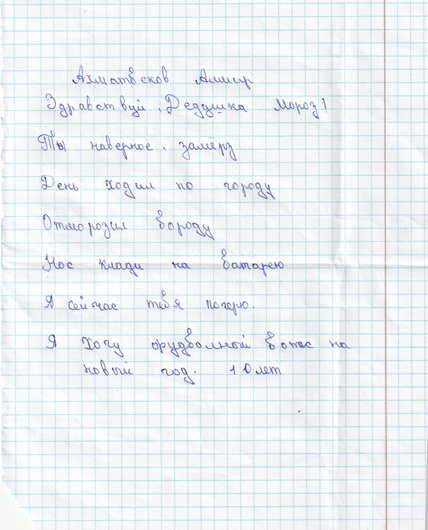 Ахматбеков Алмир
Здравствуй, Деддушка мороз!
Ты наверное, замёрз
День ходил по городу
Отморозил бороду
Нос клади на батарею
Я сейчас тебя погрею.
Я Хочу фудбольный на
новый год. 10 лет